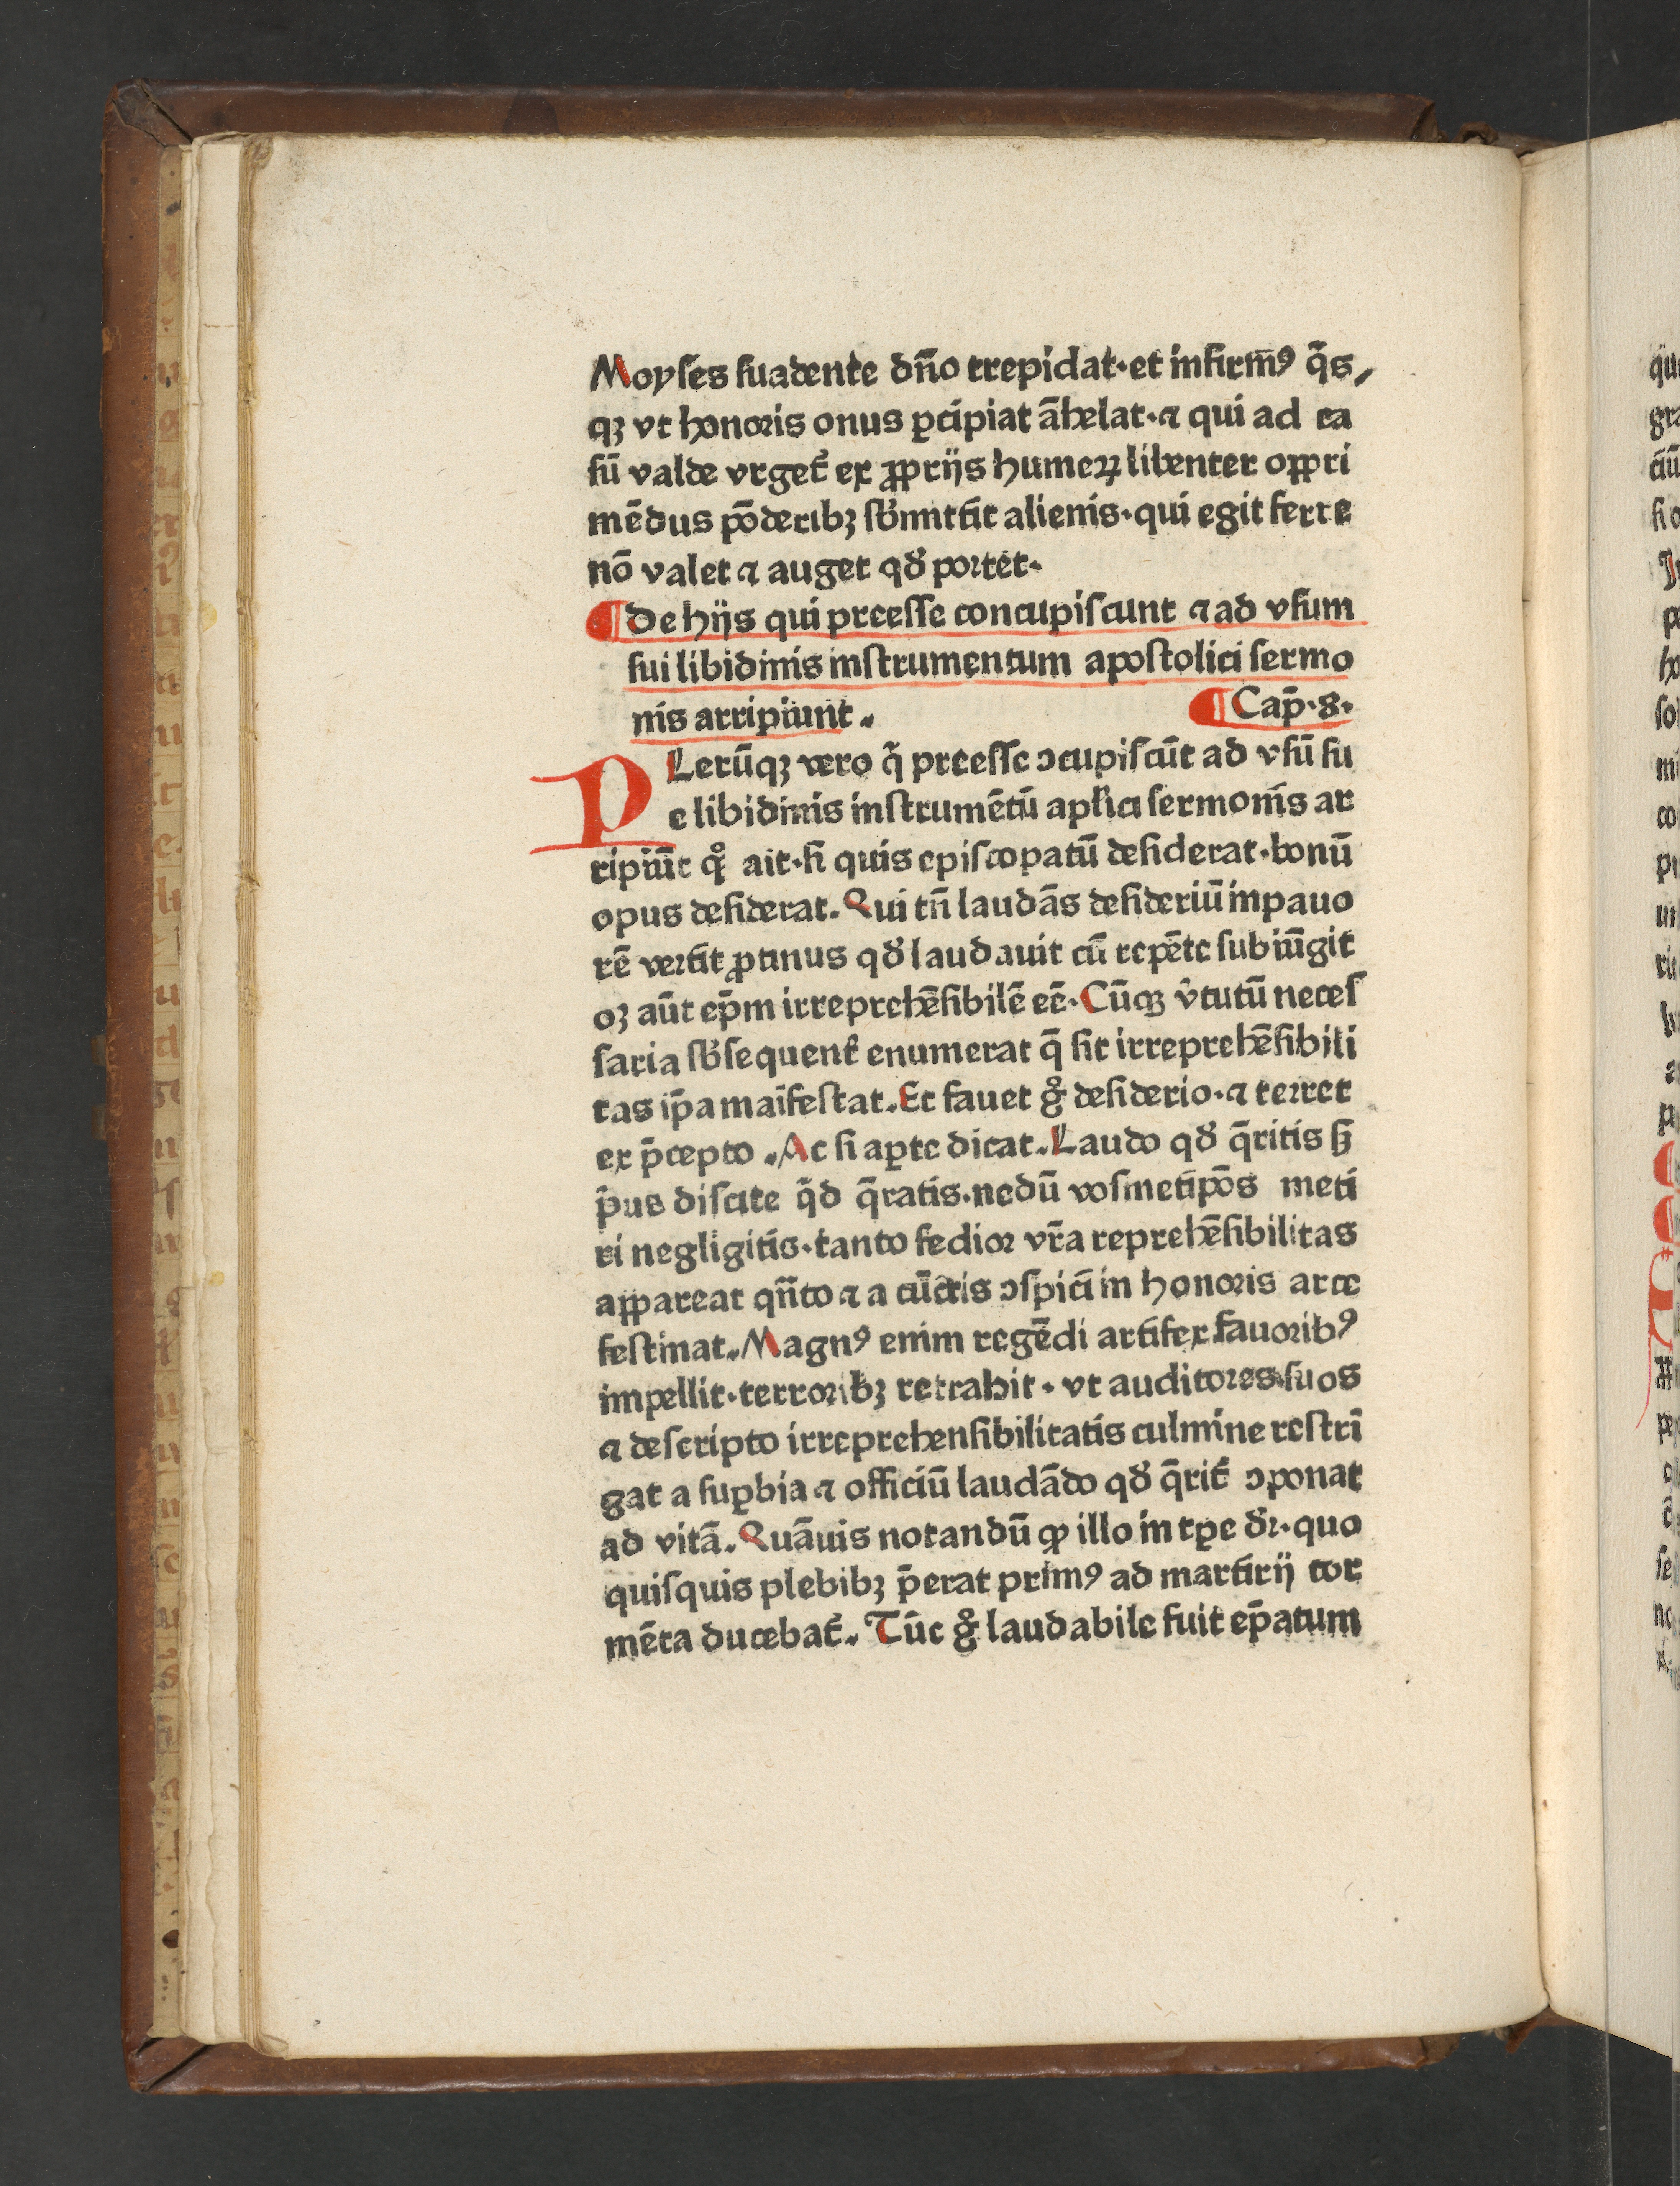 Moyſes ſuadente dn̄o trepidat·et infirm̄ꝰ q̄s,
qꝫ vt honoris onus ꝑcipiat āhelat·⁊ qui ad ca
ſū valde vrget̄ ex ꝓprijs humeꝝ libenter oppri
mēdus pōderibꝫ ſb̓mittit alienis·qui egit ferre
nō valet ⁊ auget qd̓ portet·
¶De hijs qui preeſſe concupiſcunt ⁊ ad vſum
ſui libidinis inſtrumentum apoſtolici ſermo
nis arripiunt.
¶Cap̄·8·
PLerūqꝫ vero q̄ preeſſe ɔcupiſcūt ad vſū ſu
e libidinis inſtrumētū apl̓ici ſermonis ar
ripiūt qͦ ait·ſi quis epiſcopatū deſiderat·bonū
opus deſiderat. Qui tn̄ laudās deſideriū inpauo
rē vertit ꝓtinus qd̓ laudauit cū repēte ſubiūgit
oꝫ aūt ep̄m irreprehēſibilē eē·Cūqꝫ v̓tutū neceſ
ſaria ſb̓ſequent̓ enumerat q̄ ſit irreprehēſibili
tas ip̄a maīfeſtat. Et fauet gͦ deſiderio·⁊ terret
ex p̄cepto. Ac ſi aꝑte dicat. Laudo qd̓ q̄ritis ſꝫ
p̄us diſcite q̄d q̄ratis·nedū voſmetip̄os meti
ri negligitis·tanto fedior vr̄a reprehēſibilitas
appareat qn̄to ⁊ a cūctis ɔſpici in honoris arce
feſtinat. Magnꝰ enim regēdi artifex fauoribꝰ
impellit·terroribꝫ retrahit·vt auditores ſuos
⁊ deſcripto irreprehenſibilitatis culmine reſtrī
gat a ſuꝑbia ⁊ officiū laudādo qd̓ q̄rit̓ ɔponat
ad vitā. Quāuis notandū ꝙ illo in tꝑe dr̓·quo
quiſquis plebibꝫ p̄erat primꝰ ad martirij tor
mēta ducebat̓. Tūc gͦ laudabile fuit ep̄atum